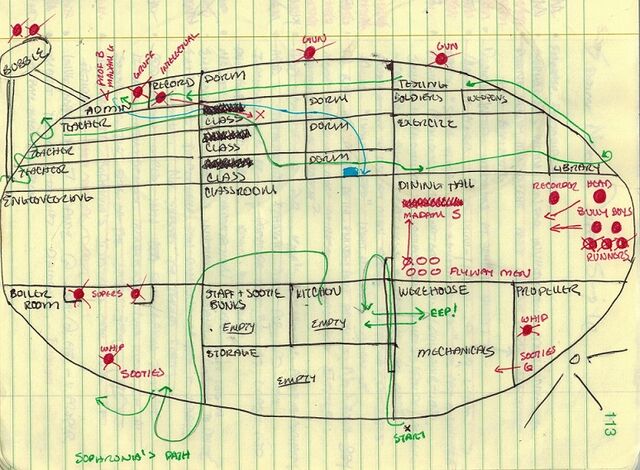 GUN
GUN
BUBBLE
PROF B
MADAM G
GRUFF
INTELLECTUAL
ADMIN
RECORD
DORM
TESTING
SOLDIERS
WEAPONS
TEACHER
CLASS
DORM
EXERCIZE
TEACHER
CLASS
DORM
TEACHER
CLASS
DORM
LIBRARY
ENGINEERING
CLASSROOM
DINING HALL
MADAM S
RECORDER
HEAD
BUNNY BOYS
RUNNERS
FLYWAY MEN
BOILER
ROOM
SUPERS
STAFF + SOOTIE
BUNKS
EMPTY
KITCHEN
EMPTY
WAREHOUSE
PROPELLER
EEP!
WHIP
WHIP
SOOTIES
STORAGE
EMPTY
MECHANICALS
SOOTIES
6
START
SOPHRONIA'S PATH
113